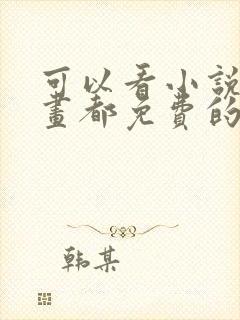 可以看小説
畫都免費的
韩某